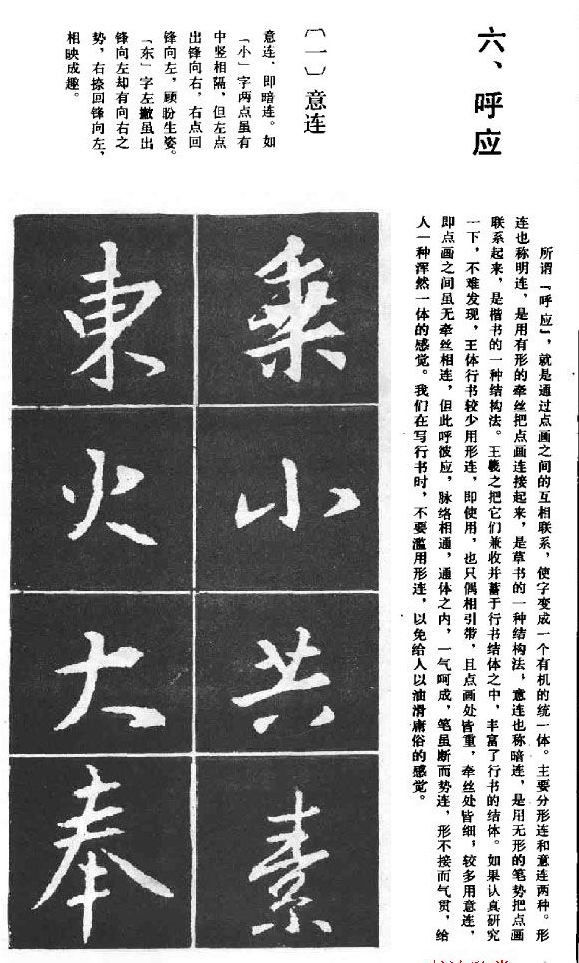 六、呼应
所谓『呼应』，就是通过点画之间的互相联系，使字变成一个有机的统一体。主要分形连和意连两种。形
连也称明连，是用有形的牵丝把点画连接起来，是草书的一种结构法，意连也称暗连，是用无形的笔势把点画
联系起来，是楷书的一种结构法。王羲之把它们兼收并蓄于行书结体之中，丰富了行书的结体。如果认真研究
一下，不难发现，王体行书较少用形连，即使用，也只偶相引带，且点画处皆重，牵丝处皆细，较多用意连，
即点画之间虽无牵丝相连，但此呼彼应，脉络相通，通体之内，一气呵成，笔虽断而势连，形不接而气贯，给
人一种浑然一体的感觉。我们在写行书时，不要滥用形连，以免给人以油滑庸俗的感觉。
〔一〕意连
意连，即暗连。如
「小」字两点虽有
中竖相隔，但左点
出锋向右，右点回
锋向左，顾盼生姿。
「东」字左撇虽出
锋向左却有向右之
势，右捺回锋向左，
相映成趣。
乘
小
共
素
東
火
大
奉